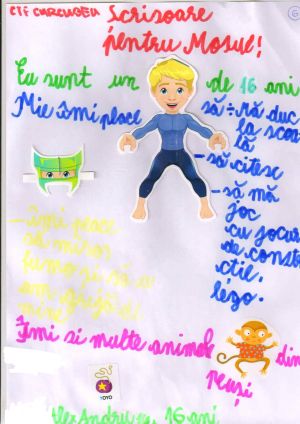 CTF CURCUBEU
Scrisoare
pentru Moșul!
Eu sunt un
de 16 ani
Mie îmi place
să mă duc
la școa
lă
- să citesc
- să mă
joc
cu jocuri
de constru
cții,
lego.
- îmi place
să miros
frumos și să
am grijă de
mine
Îmi
și multe animale
din
pluș
YOYO
Alexandru, 16 ani